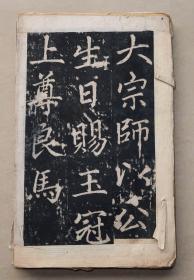 大宗師以公
生日賜玉冠
上尊良馬